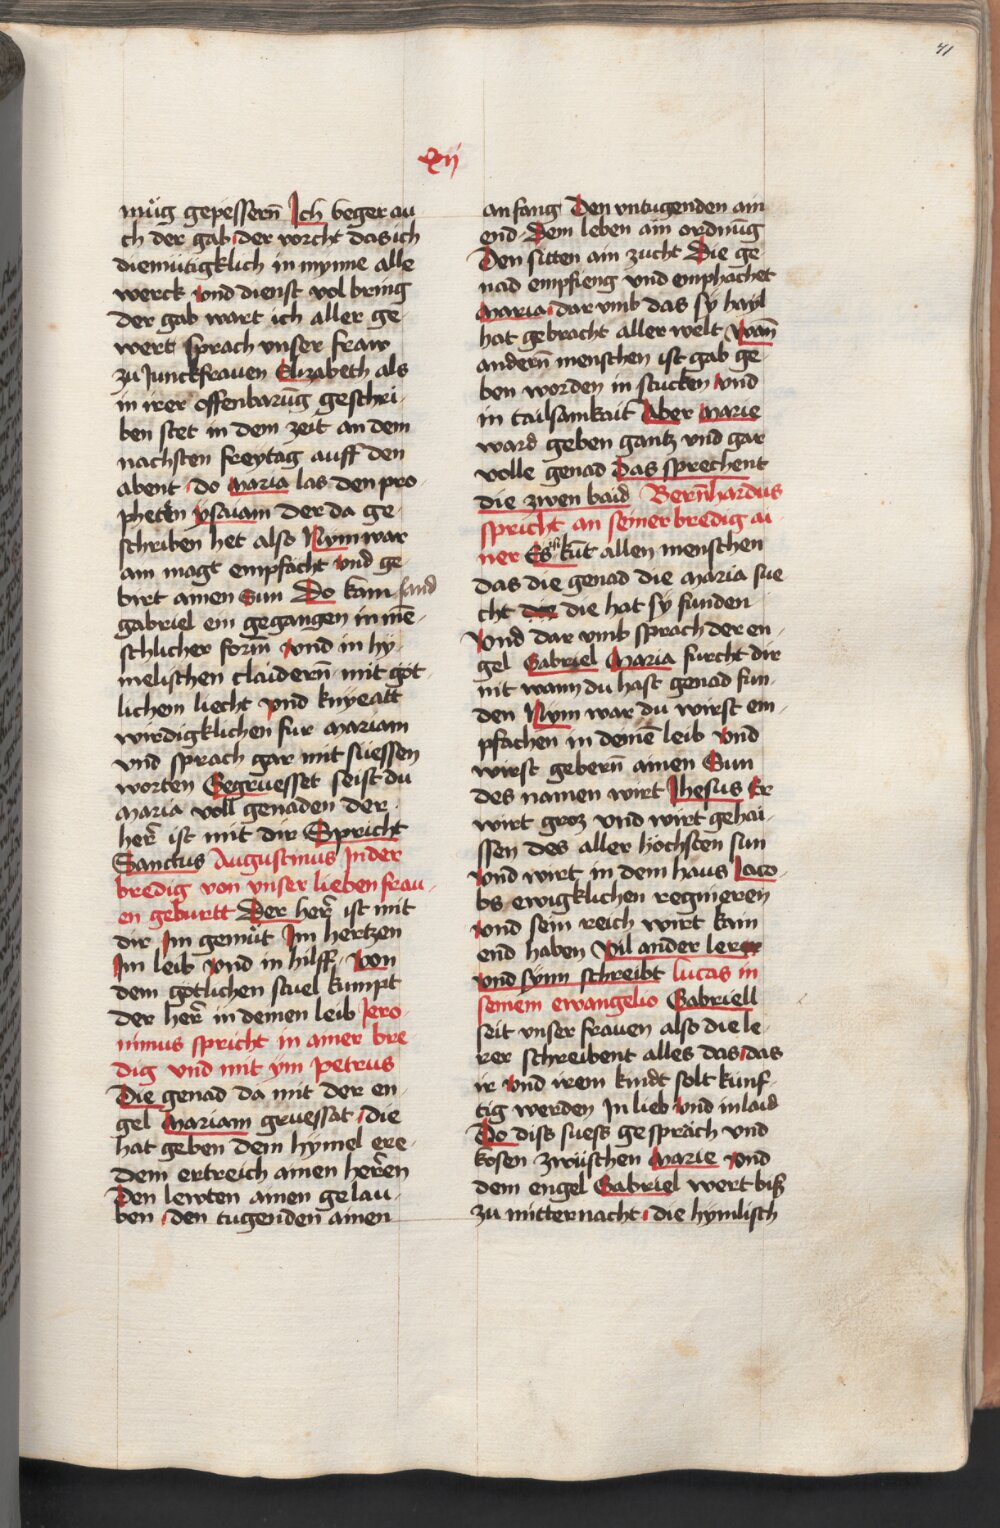 71
xij
müg gepessern̄ Ich beger au
ch der gab der vorcht das ich
diemütigklich in mynne alle
werck vnd dienst vol bring
der gab wart ich aller ge¬
wert sprach vnser fraw
zu Junckfrauen Elizabeth als
in irer offenbarūg geschri¬
ben stet in dem zeit an dem
nachsten freytag auff den
abent do Maria las den pro¬
pheten ysayam der da ge¬
schriben het also Nym war
ain magt empfächt vnd ge¬
birt ainen Sun Do kam sand
gabriel ein gegangen in mē¬
schlicher form̄ vnd in hy¬
melischen claidern̄ mit göt¬
lichem liecht vnd knyeatt
wirdigklichen fur Mariam
vnd sprach gar mit suessen
worten Gegruesset seist du
Maria voll genaden der
her̄ ist mit dir Spricht
Sanctus Augustinus In der
bredig von vnser lieben frau¬
en geburtt Der her̄ ist mit
dir Im gemüt Im hertzen
Im leib vnd in hilff Von
dem götlichen stuel kumpt
der her̄ in deinen leib Jero¬
nimus spricht in ainer bre
dig vnd mit ym Petrus
Die genad da mit der en¬
gel Mariam gruessat die
hat geben dem hymel ere¬
dem ertreich ainen her̄en
Den lewten ainen gelau¬
ben den tugenden ainen
anfang Den vntugenden ain
end Dem leben ain ordnūg
Den sitten ain zucht Die ge
nad empfieng vnd emphachet
Maria dar vmb das sy hayl
hat gebracht aller welt Wan̄
andern̄ menschen ist gab ge¬
ben worden in stucken vnd
in tailsamkait Aber Marie
ward geben gantz vnd gar
volle genad Das sprechent
die zwen baid Bern̄hardus
spricht an seiner bredig ai
ner Es ist kūt allen menschen
das die genad die Maria sue
cht die die hat sy funden
Vnd dar vmb sprach der en¬
gel Gabriel Maria furcht dir
nit wann du hast genad fun¬
den Nym war du wirst em¬
pfachen in deinē leib vnd
wirst gebern̄ ainen Sun
des namen wirt Jhesus Er
wirt groz vnd wirt gehai¬
ssen des aller höchsten sun
vnd wirt in dem haus Jaco¬
bs ewigklichen regnieren
vnd sein reich wirt kain
end haben Vil ander lerer
vnd synn schreibt Lucas in
seinem ewangelio Gabriell
seit vnser frauen also die le¬
rer schreibent alles das das
ir vnd irem kindt solt künf¬
tig werden In lieb vnd in laid
Do diss suess gespräch vnd
kosen zwüschen Marie vnd
dem engel Gabriel wert biß
zu mitternacht die hymlisch